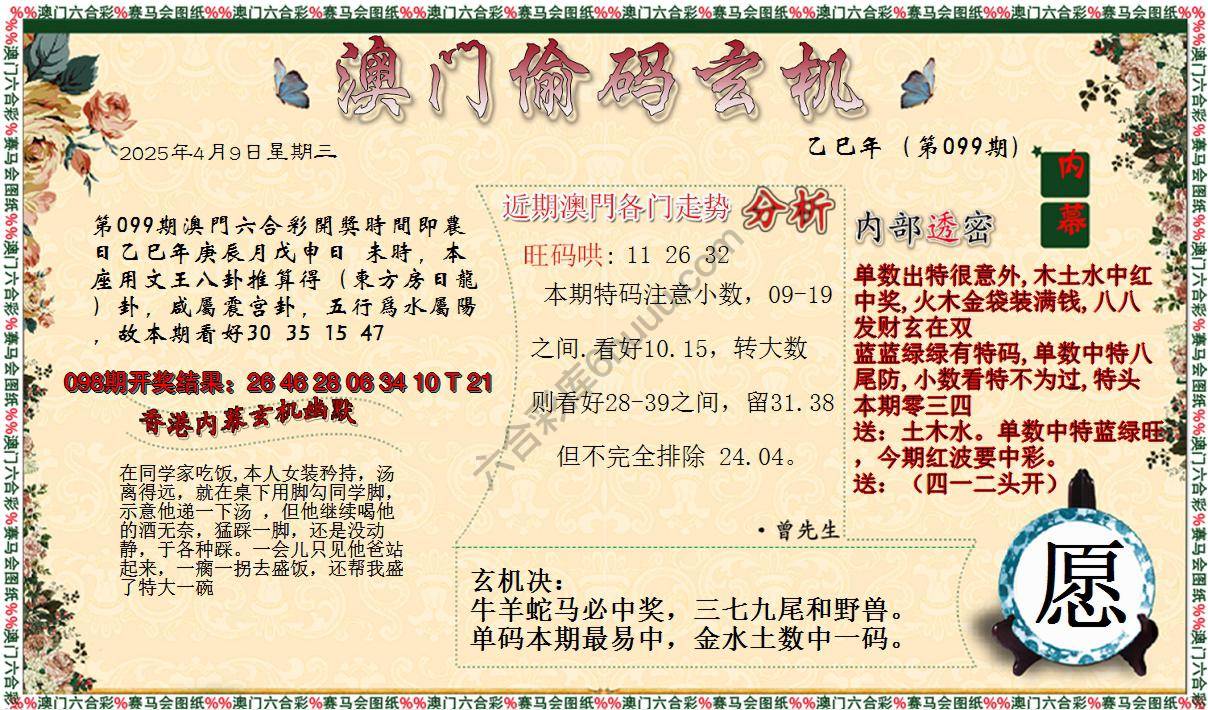 %%澳门六合彩%赛马会图纸%%澳门六合彩%赛马会图纸%%澳门六合彩%赛马会图纸%%澳门六合彩%赛马会图纸%%澳门六合彩%赛马会图纸%%澳门六合彩%赛马会图纸
澳门偷码玄机
2025年4月9日星期三
乙巳年（第099期）
内幕
第099期澳門六合彩開獎時間即農
日乙巳年庚辰月戊申日 未時，本
座用文王八卦推算得（東方房日龍
）卦，咸屬震宫卦，五行爲水屬陽
，故本期看好30 35 15 47
098期开奖结果：26 46 28 06 34 10 T 21
香港内幕玄机幽默
在同学家吃饭,本人女装矜持，汤
离得远，就在桌下用脚勾同学脚，
示意他递一下汤 ，但他继续喝他
的酒无奈，猛踩一脚，还是没动
静，于各种踩。一会儿只见他爸站
起来，一瘸一拐去盛饭，还帮我盛
了特大一碗
近期澳門各门走势 分析
旺码哄: 11 26 32
本期特码注意小数，09-19
之间.看好10.15，转大数
则看好28-39之间，留31.38
但不完全排除 24.04。
·曾先生
内部透密
单数出特很意外,木土水中红
中奖,火木金袋装满钱,八八
发财玄在双
蓝蓝绿绿有特码,单数中特八
尾防,小数看特不为过,特头
本期零三四
送：土木水。单数中特蓝绿旺
，今期红波要中彩。
送：（四一二头开）
玄机决：
牛羊蛇马必中奖，三七九尾和野兽。
单码本期最易中，金水土数中一码。
愿
%%澳门六合彩%赛马会图纸%%澳门六合彩%赛马会图纸%%澳门六合彩%赛马会图纸%%澳门六合彩%赛马会图纸%%澳门六合彩%赛马会图纸%%澳门六合彩%赛马会图纸